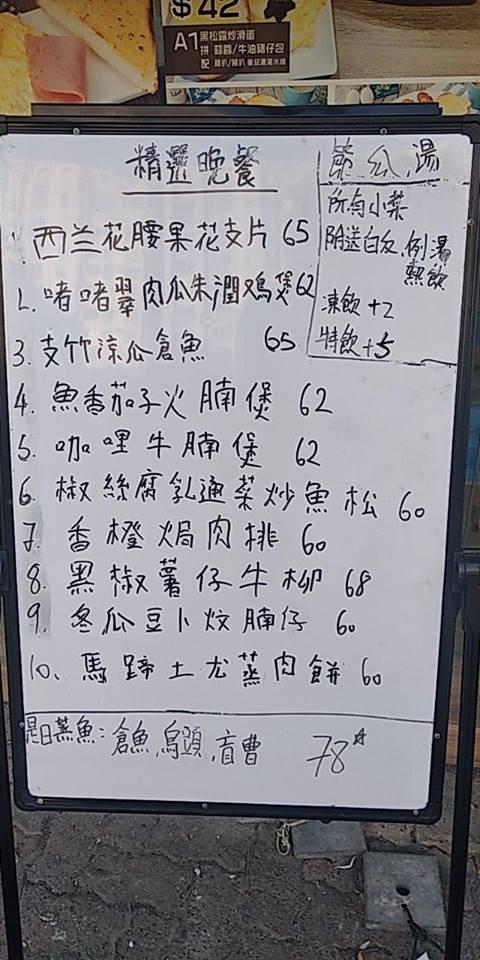 $42
A1 黑松露炒滑蛋
拼 蒜蓉/牛油豬仔包
配
精選晚餐
瓜 湯
所有小菜
附送白飯,例湯
熱飲
凍飲+2
特飲+5
西兰花腰果花支片 65
2. 啫啫翠肉瓜朱潤鳮煲 62
3. 支竹涼瓜倉魚 65
4. 魚香茄子火腩煲 62
5. 咖哩牛腩煲 62
6. 椒絲腐乳通菜炒魚松 60
7. 香橙焗肉排 60
8. 黑椒薯仔牛柳 68
9. 冬瓜豆卜炆腩仔 60
10、馬蹄土尤蒸肉餅 60
是日蒸魚:倉魚,烏頭,盲曹 78